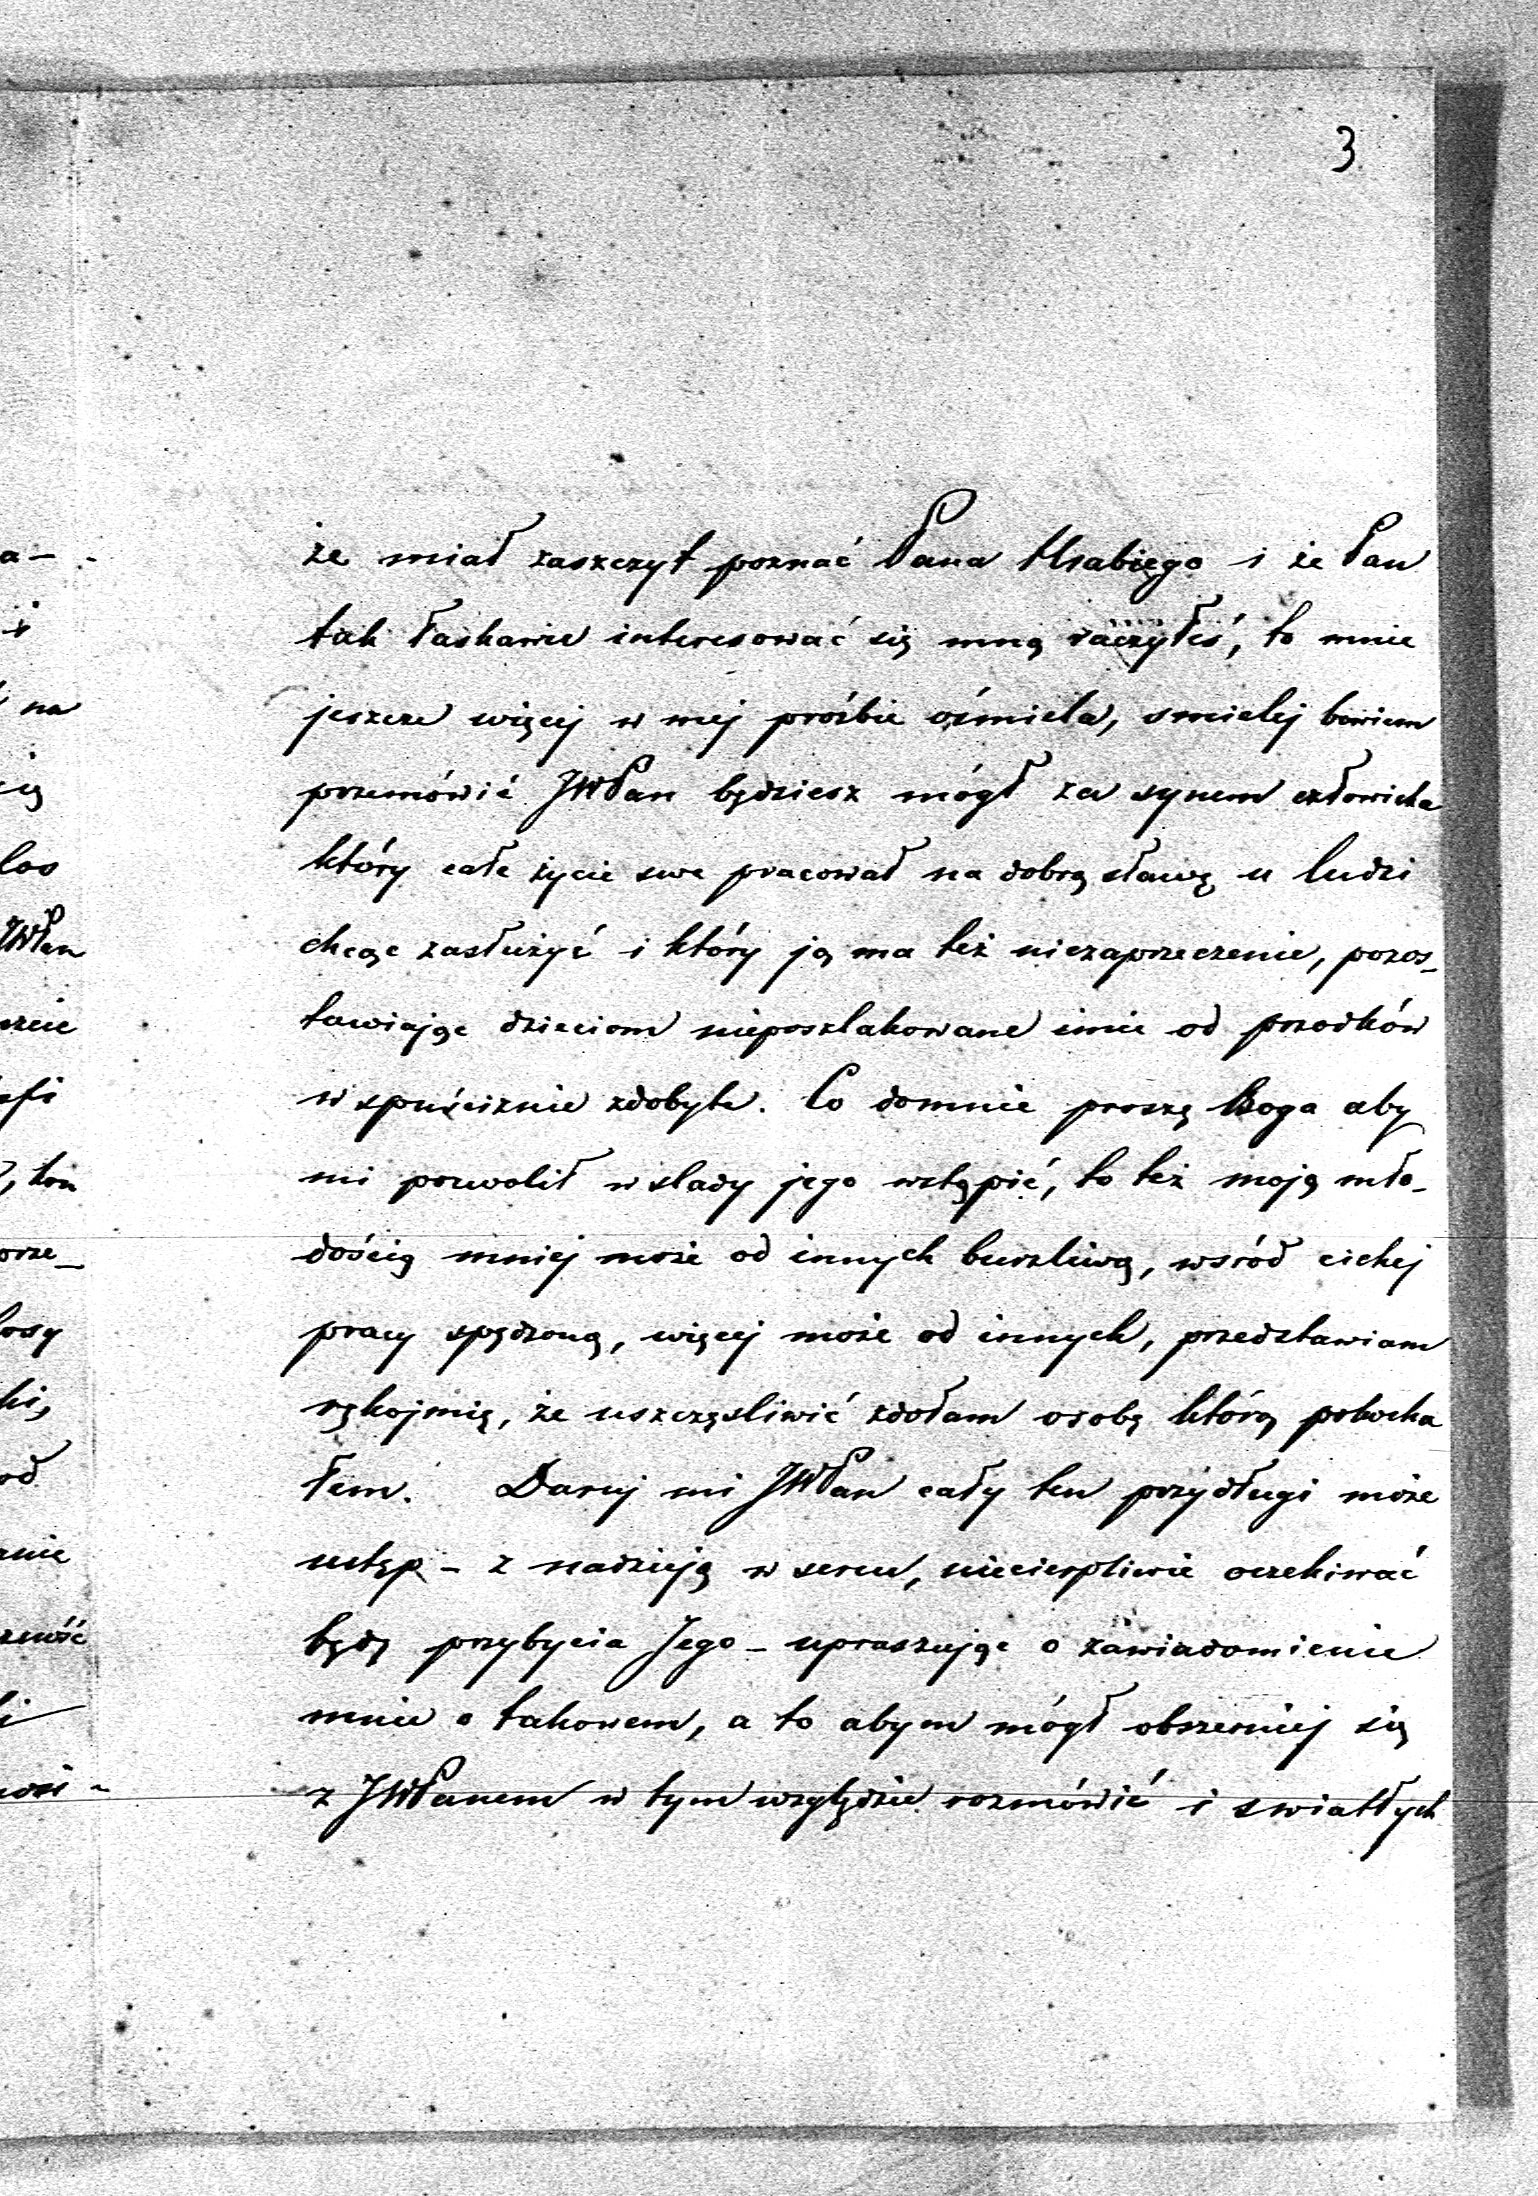 3
że miał zaszczyt poznać Pana Hrabiego i że Pan
tak łaskawie interesować się mną raczyłeś, to mnie
jeszcze więcej w mej prośbie ośmiela, smielej bowiem
przemówić JWPan będziesz mógł za synem człowieka
który całe życie swe pracował na dobrą sławę u ludzi
chcąc zasłużyć i który ją ma też niezaprzeczenie, pozos-
tawiając dzieciom nieposzlakowane imie od przodków
w spuściznie zdobyte. Co domnie proszę Boga aby
mi pozwolił w slady jego wstąpić, to też moją mło-
dością mniej może od innych burzliwą, wsród cichej
pracy spędzoną, więcej może od innych, przedstawiam
rękojmią, że uszczęsliwić zdołam osobę którą pokocha
łem. Daruj mi JWPan cały ten przydługi może
ustęp - z nadzieją w sercu, niecierpliwie oczekiwać
będę przybycia Jego - upraszając o zawiadomienie
mnie o takowem, a to abym mógł obszerniej się
z JWPanem w tym względzie rozmówić i swiatłych